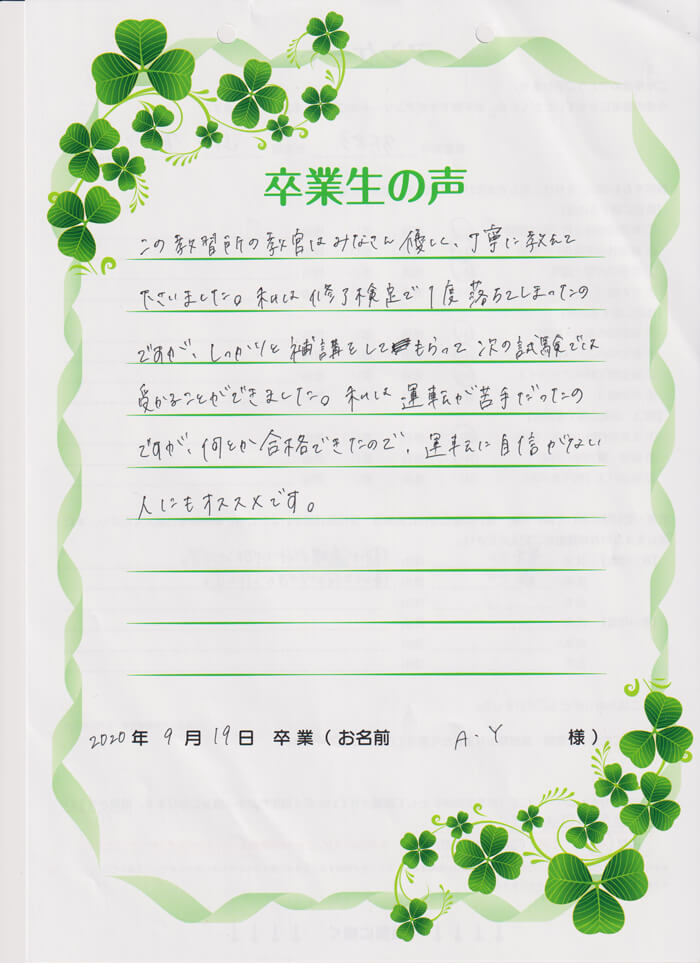 卒業生の声
この教習所の教官はみなさん優しく、丁寧に教えて
くださいました。私は修了検定で1度落ちてしまったの
ですが、しっかりと補講をしてもらって次の試験では
受かることができました。私は運転が苦手だったの
ですが、何とか合格できたので、運転に自信がない
人にもオススメです。
2020年9月19日 卒業(お名前 A.Y 様)